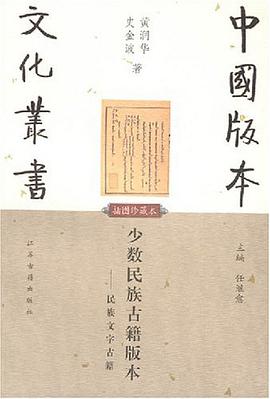 中國版本
文化叢書
黄润华
史金波 著
插图珍藏本
少数民族古籍版本
——民族文字古籍
主编 任继愈
江苏古籍出版社